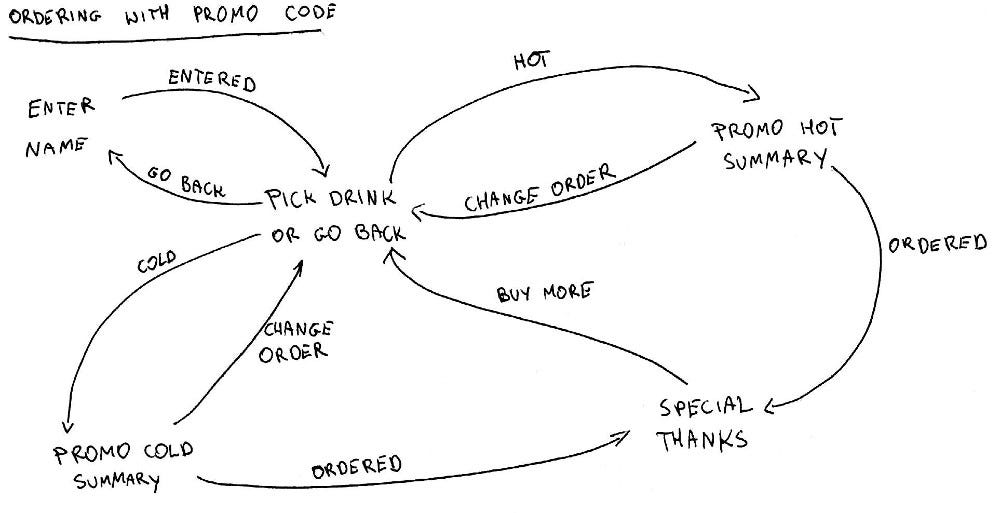 ORDERING WITH PROMO CODE
ENTERED
HOT
ENTER
NAME
PROMO HOT
SUMMARY
GO BACK
PICK DRINK
OR GO BACK
CHANGE ORDER
ORDERED
COLD
BUY MORE
CHANGE
ORDER
SPECIAL
THANKS
PROMO COLD
SUMMARY
ORDERED